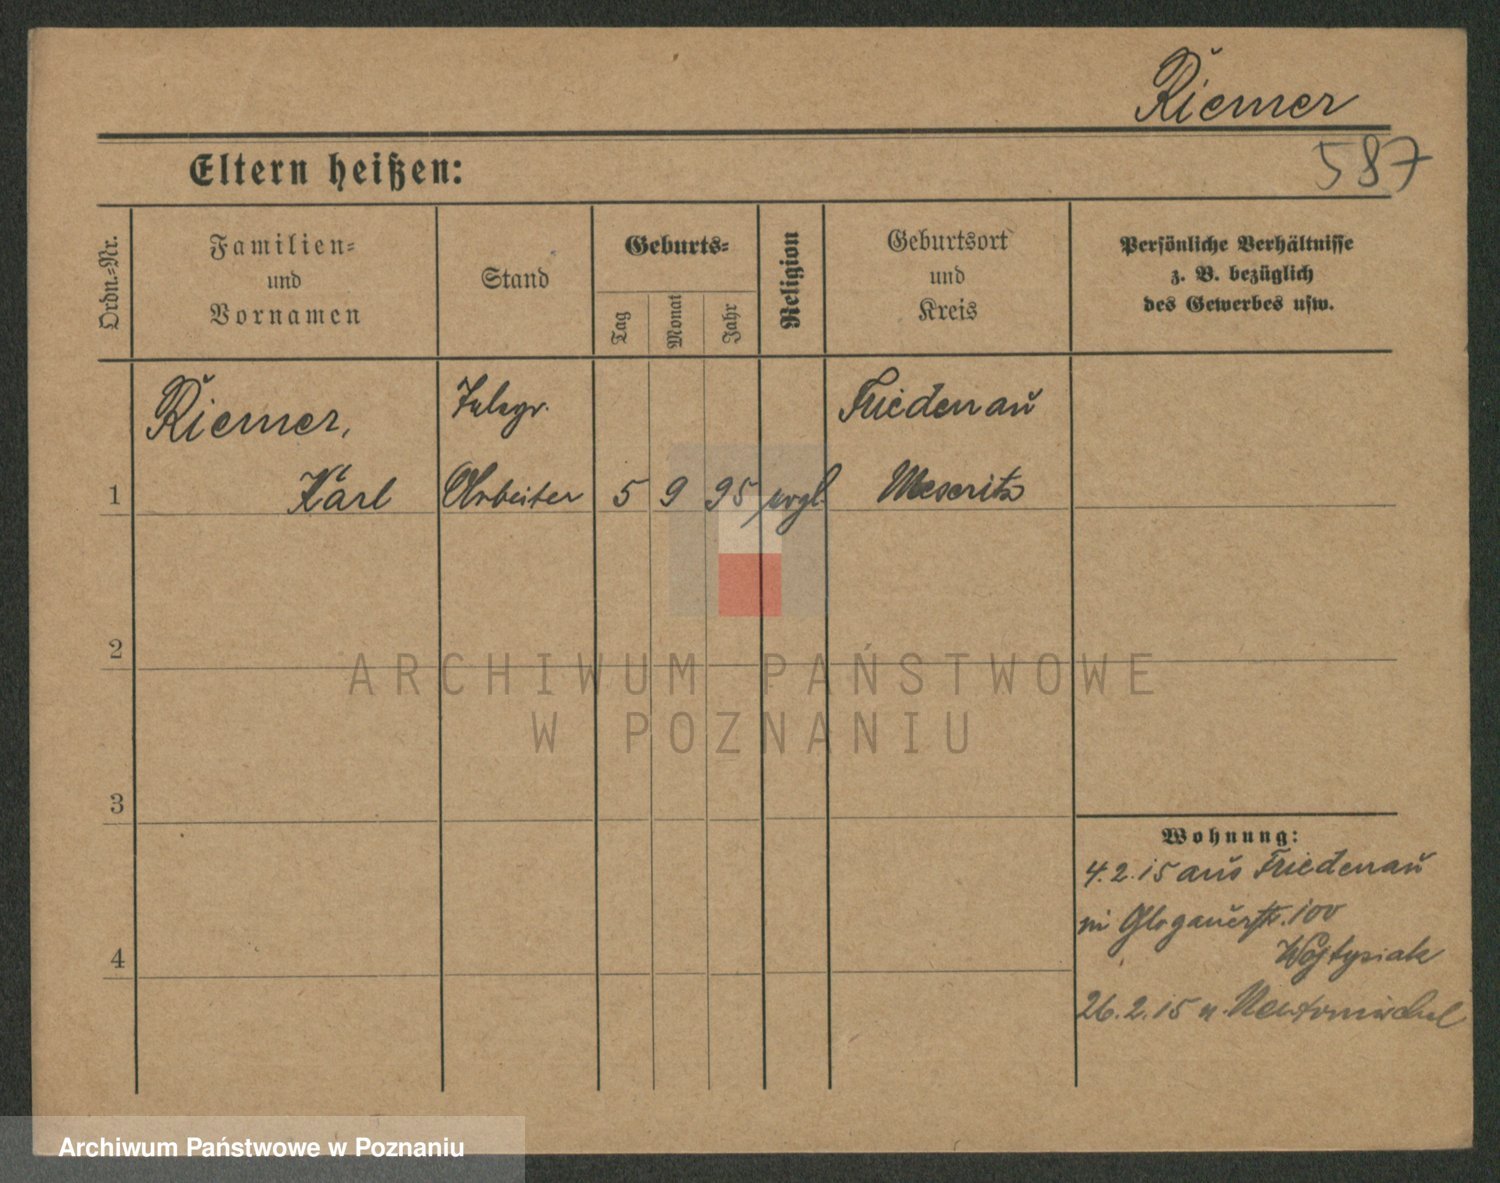 Riemer
587
Eltern heißen:
Ordn.=Nr.
Familien=
und
Vornamen
Stand
Geburts=
Tag
Monat
Jahr
Religion
Geburtsort
und
Kreis
Persönliche Verhältnisse
z. B. bezüglich
des Gewerbes usw.
Riemer, Telegr. Friedenau
1 Karl Arbeiter 5 9 95 evgl Meseritz
2
3
4
Wohnung:
4.2.15 aus Friedenau
in Glogauerstr. 100
Wojtysiak
26.2.15 n. Neutomischel
ARCHIWUM PAŃSTWOWE
W POZNANIU
Archiwum Państwowe w Poznaniu